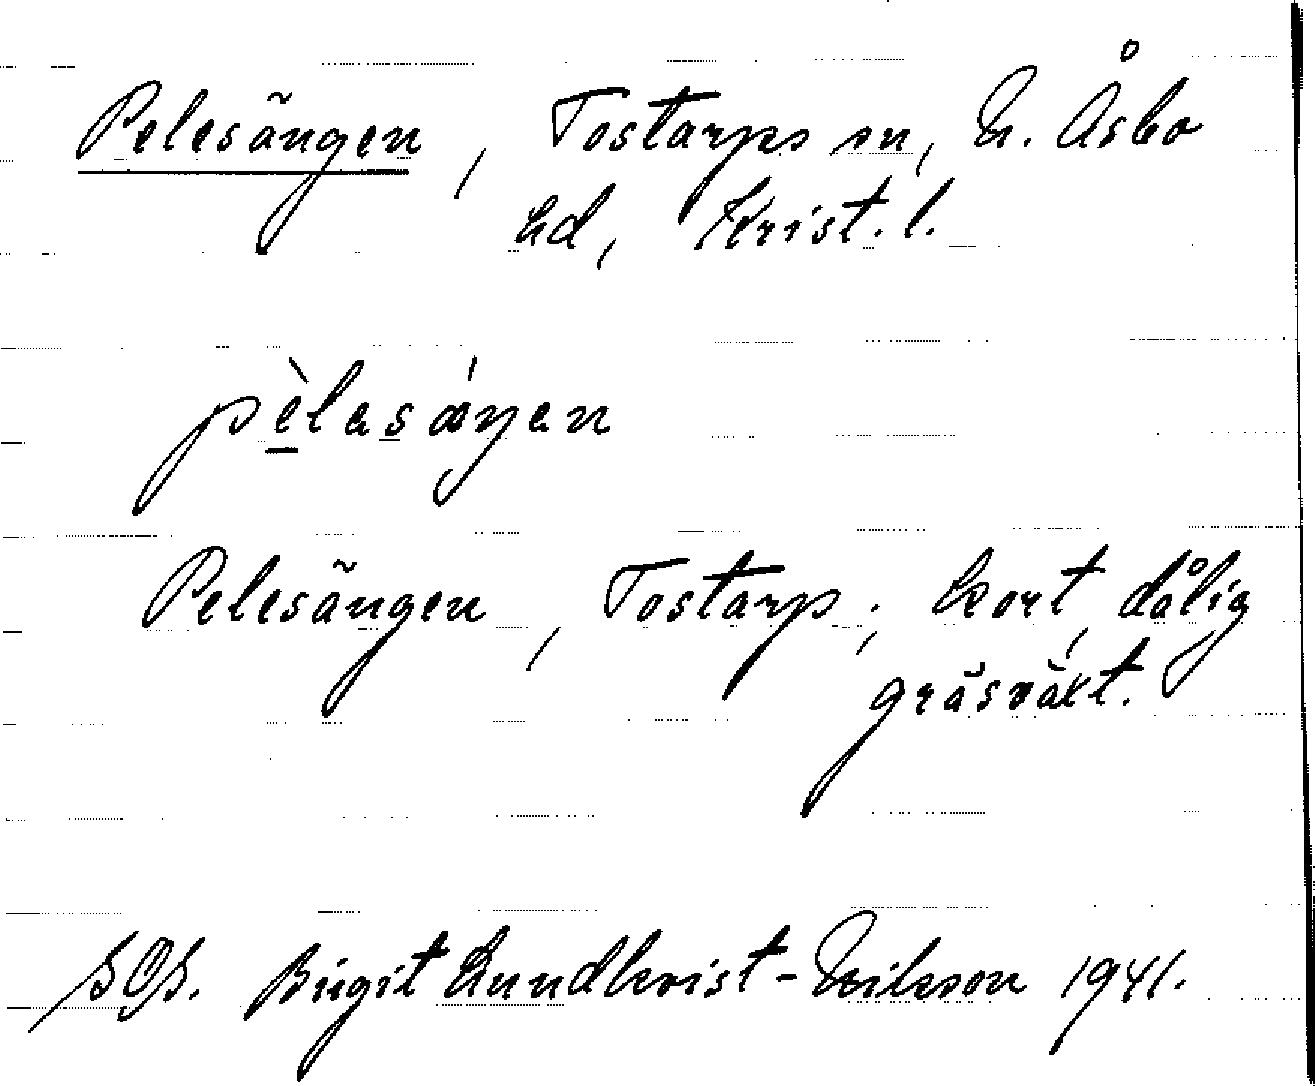 Pelesängen, Tostarps sn, N. Åsbo
hd, Krist. l.
pèlesǽŋen
Pelesängen, Tostarp; kort, dålig
gräsväxt.
Birgit Lundkvist-Nilsson 1941.